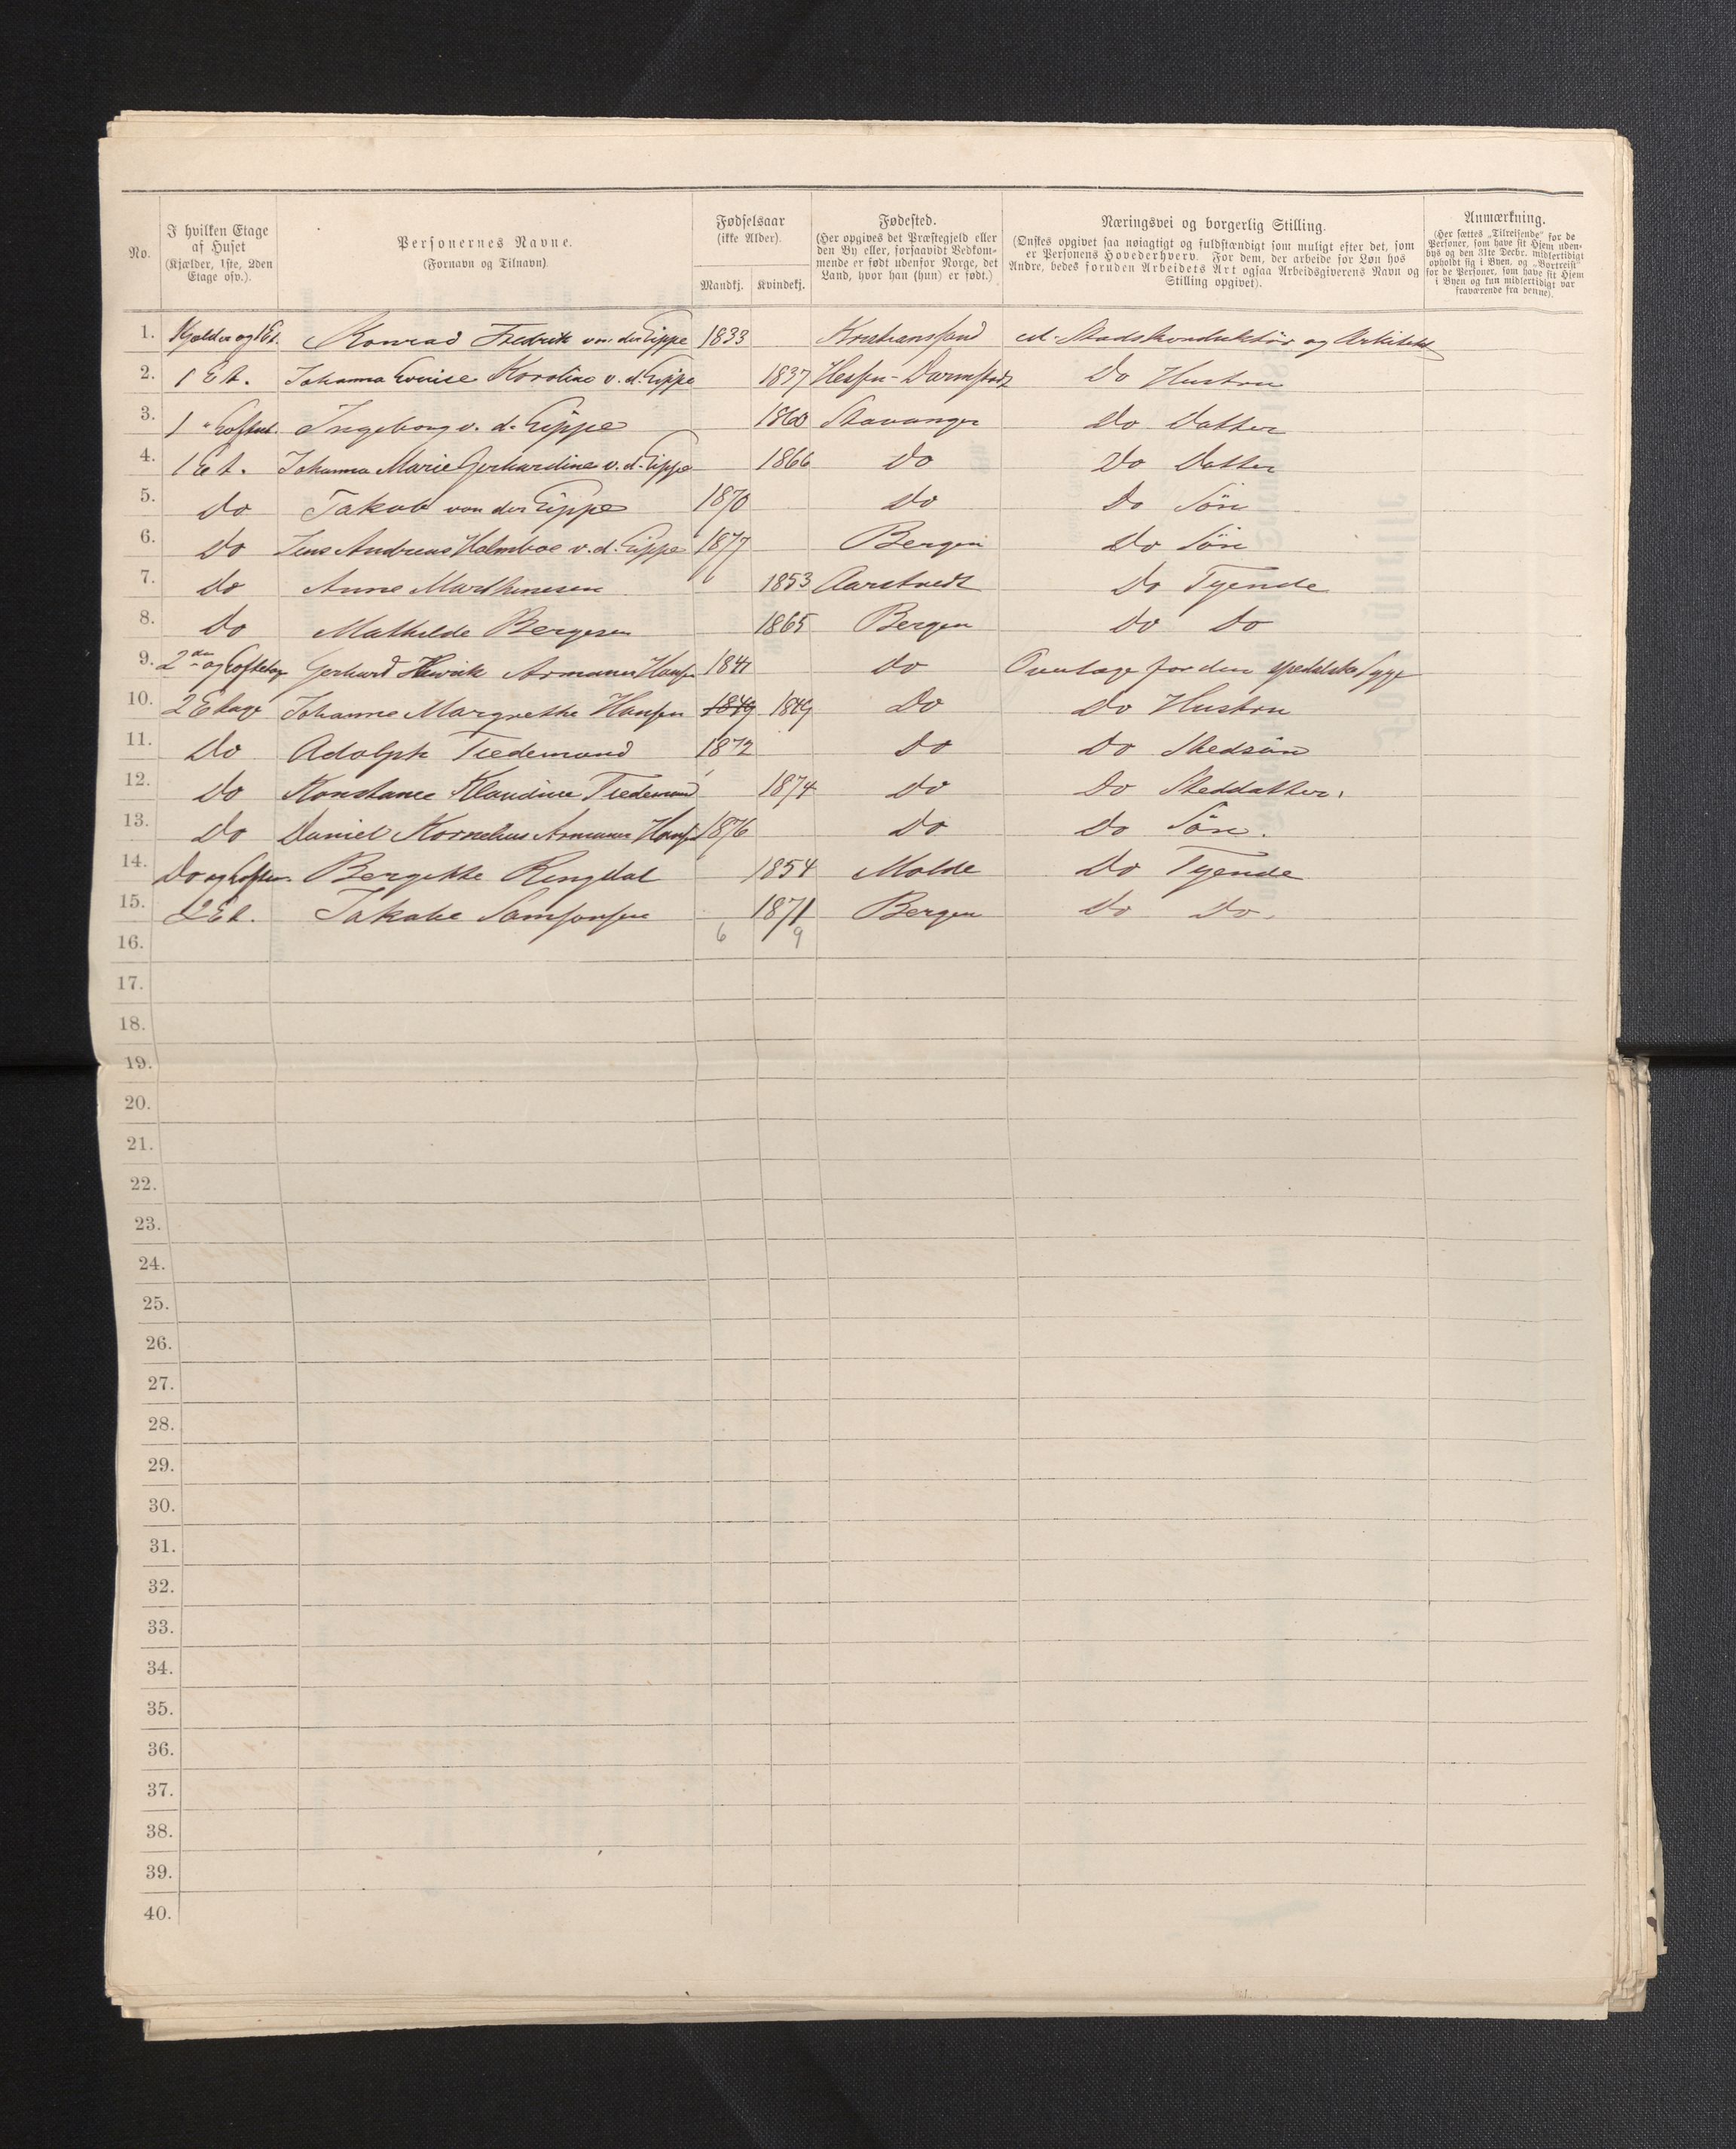 No.
I hvilken Etage af Huset (Kjælder, 1ste, 2den Etage osv.).
Personernes Navne. (Fornavn og Tilnavn)
Fødselsaar (ikke Alder).
Mandkj. Kvindekj.
Fødested. (Her opgives det Præstegjeld eller den By eller, forsaavidt Vedkommende er født udenfor Norge, det Land, hvor han (hun) er født.)
Næringsvei og borgerlig Stilling. (Ønskes opgivet saa nøiagtigt og fuldstændigt som muligt efter det, som er Personens Hovederhverv. For dem, der arbeide for Løn hos Andre, bedes foruden Arbeidets Art ogsaa Arbeidsgiverens Navn og Stilling opgivet).
Anmærkning. (Her sættes „Tilreisende" for de Personer, som have sit Hjem udenbys og den 31te Decbr. midlertidigt opholdt sig i Byen, og „Bortreist" for de Personer, som have sit Hjem i Byen og kun midlertidigt var fraværende fra denne).
1. Kjælder og 1 Et. Konrad Fredrik von der Lippe 1833 Kristianssand Stadskonduktör og Arkitekt
2. 1 Et. Johanna Louise Karoline v. d. Lippe 1837 Hessen-Darmstadt Do Hustru
3. 1 " Loftset. Ingeborg v. d. Lippe 1860 Stavanger Do Datter
4. 1 Et. Johanna Marie Gerhardine v. d. Lippe 1866 Do Do Datter
5. Do Jakob von der Lippe 1870 Do Do Sön
6. Do Jens Andreas Holmboe v. d. Lippe 1877 Bergen Do Sön
7. Do Anne Marthinesen 1853 Aarstvedt Do Tyende
8. Do Mathilde Bergesen 1865 Bergen Do Do
9. 2den og Loftetage Gerhard Henrik Armauer Hansen 1841 Do Overlæge for den spedalske Syge
10. 2 Etage Johanne Margrethe Hansen 1849 1849 Do Do Hustru
11. Do Adolph Tiedemand 1872 Do Do Stedsön
12. Do Konstance Klaudine Tiedemand 1874 Do Do Steddatter.
13. Do Daniel Kornelius Armauer Hansen 1876 Do Do Sön.
14. Do og Loften. Bergitte Ringdal 1854 Molde Do Tyende
15. 2 Et. Jakobe Samsonsen 1871 Bergen Do Do.
16. 6 9
17.
18.
19.
20.
21.
22.
23.
24.
25.
26.
27.
28.
29.
30.
31.
32.
33.
34.
35.
36.
37.
38.
39.
40.